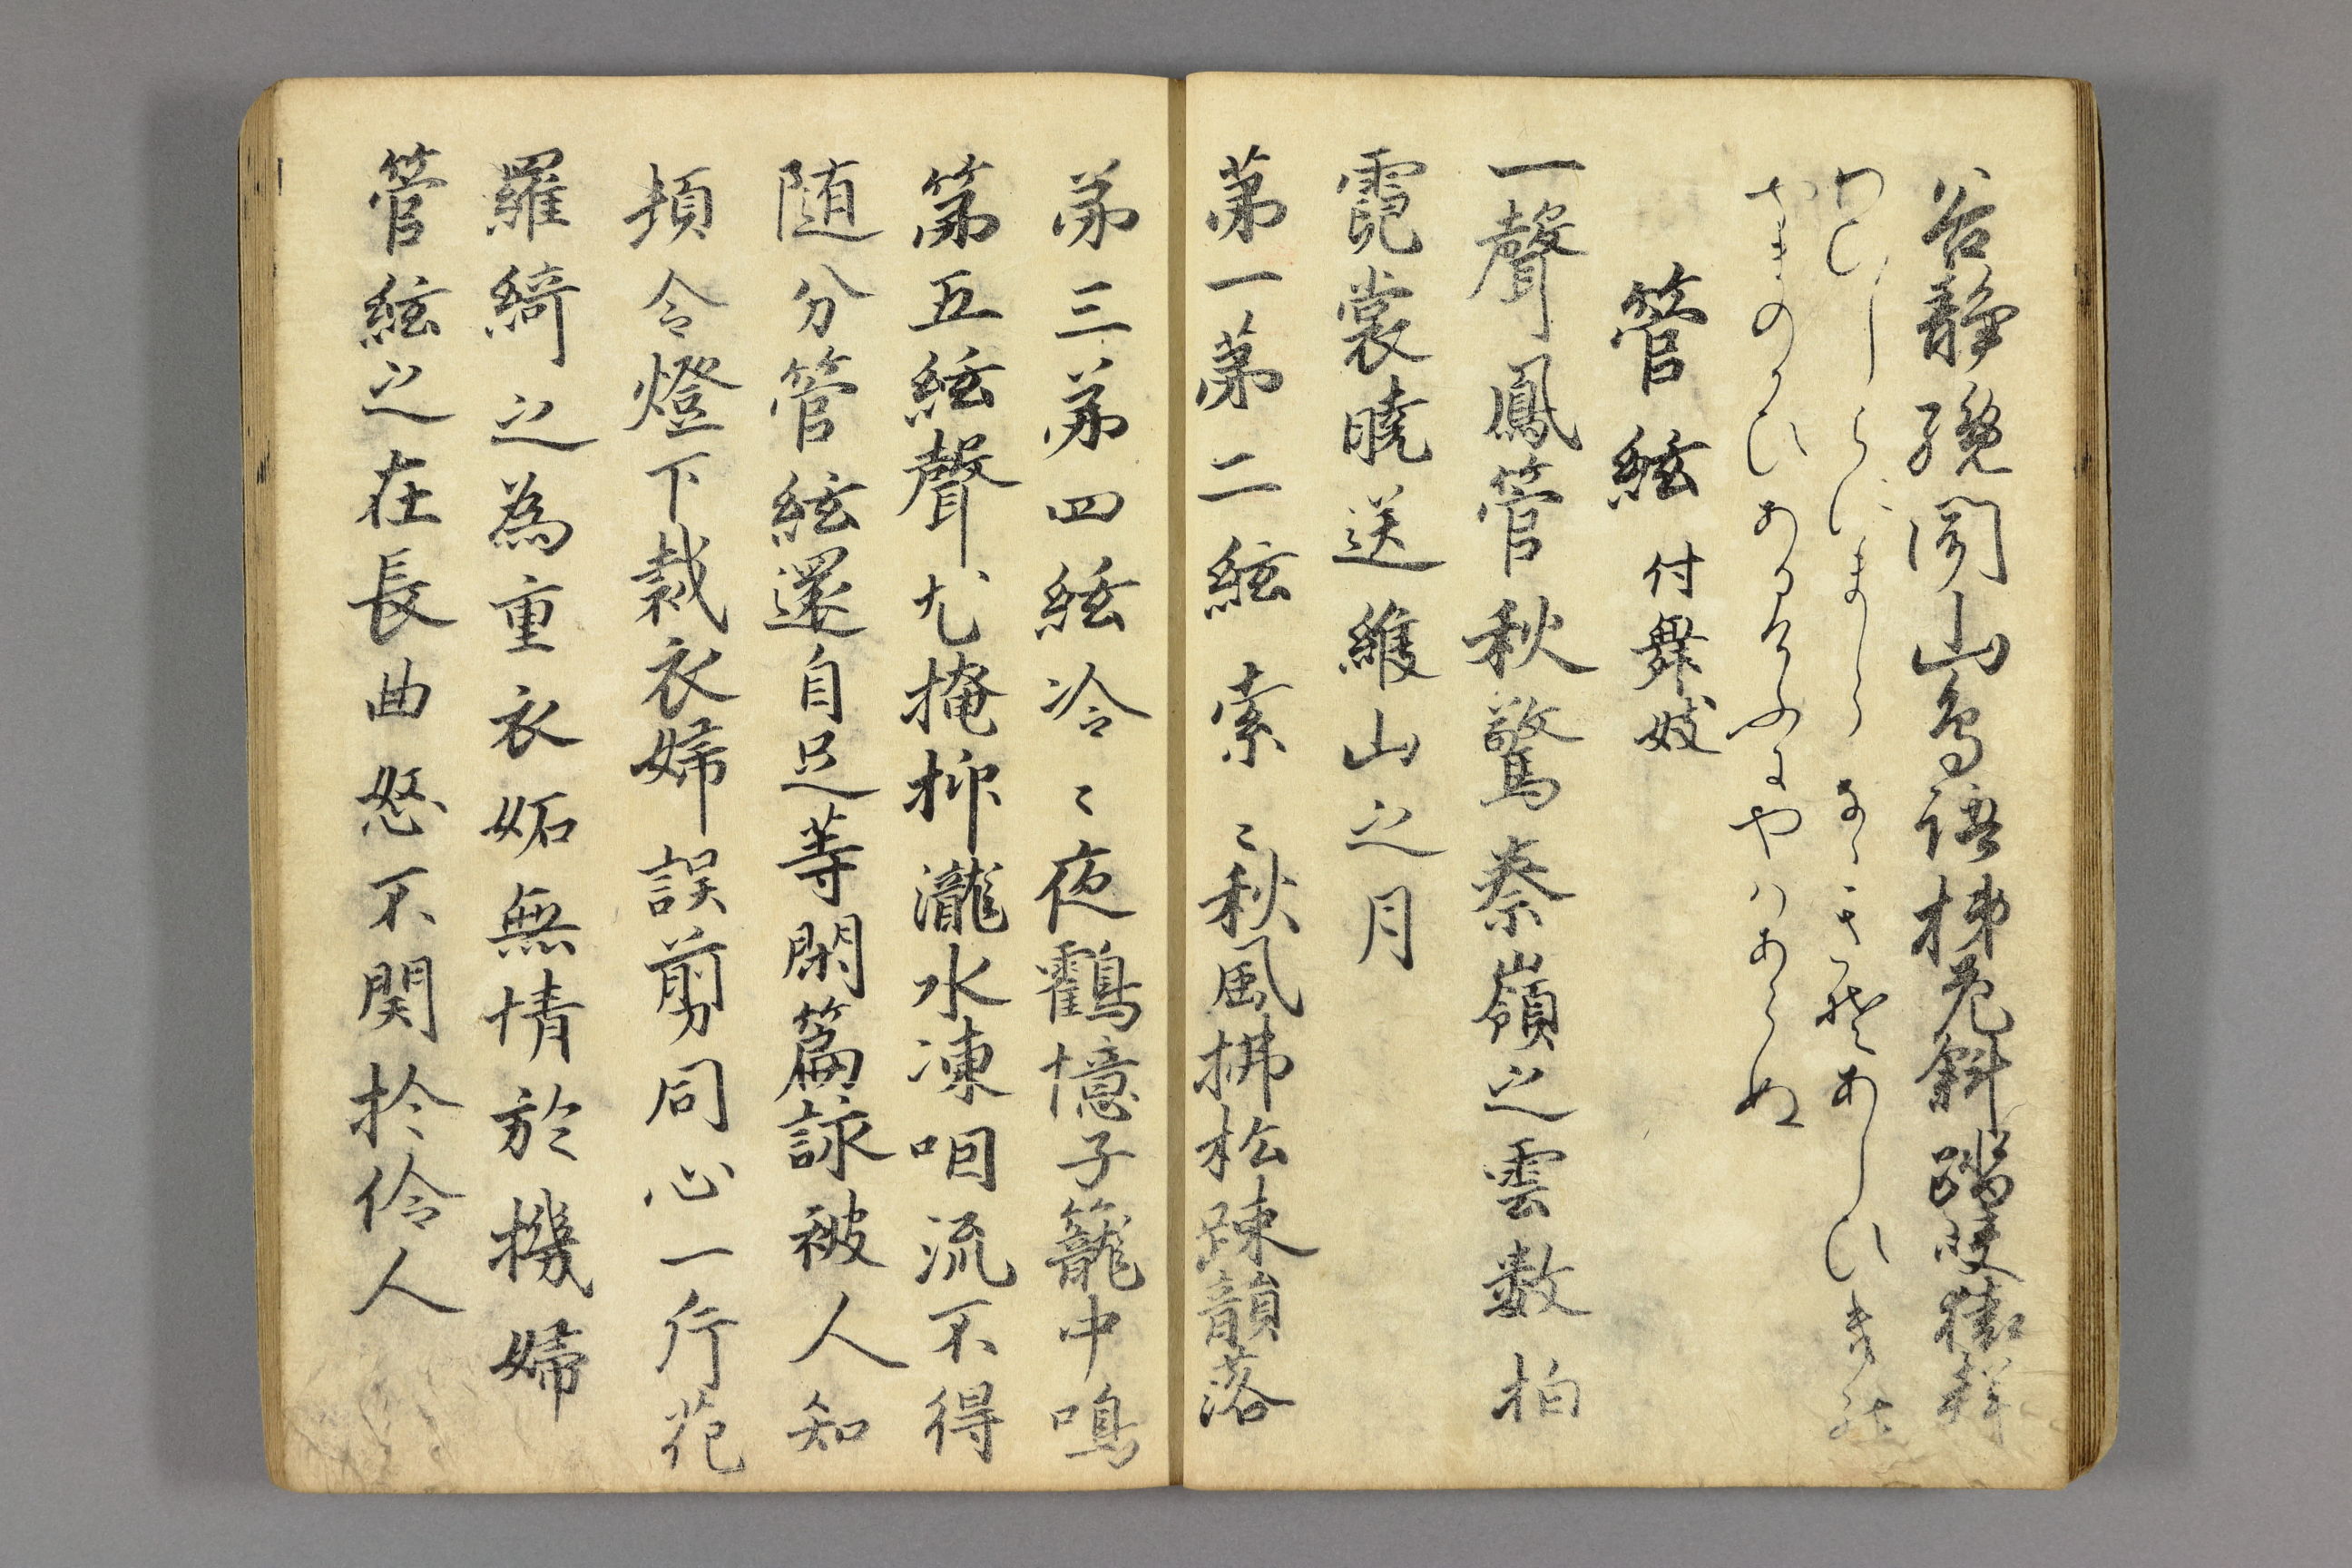 谷静纔聞山鳥語梯危斜踏峡猿聲
わひしらにましらなゝきそあしひきの
やまのかひあるけふにやはあらぬ
管絃 付舞妓
一聲鳳管秋驚秦嶺之雲数拍
霓裳暁送緱山之月
第一第二絃索〻秋風拂松踈韻落
第三第四絃冷〻夜鸖憶子籠中鳴
第五絃聲尤掩抑瀧水凍咽流不得
随分管絃還自足等閑篇詠被人知
頓令燈下裁衣婦誤剪同心一片花
羅綺之為重衣妬無情於機婦
管絃之在長曲怒不関於伶人